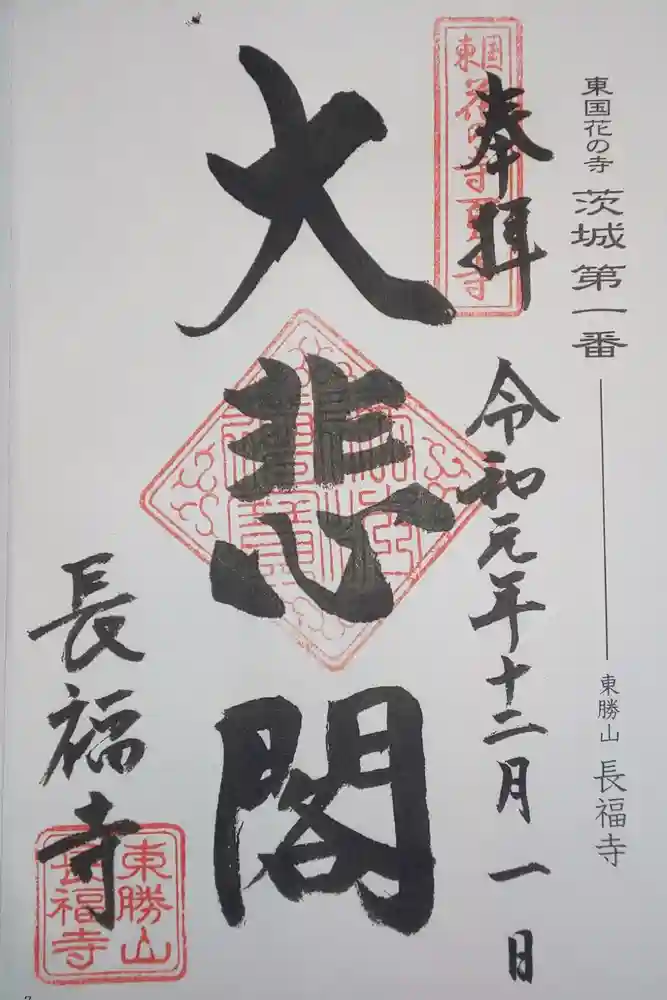 東国花の寺 茨城第一番
東勝山 長福寺
東国
花の寺百ヶ寺
奉拝
令和元年十二月一日
大悲閣
長福寺
東勝山
長福寺